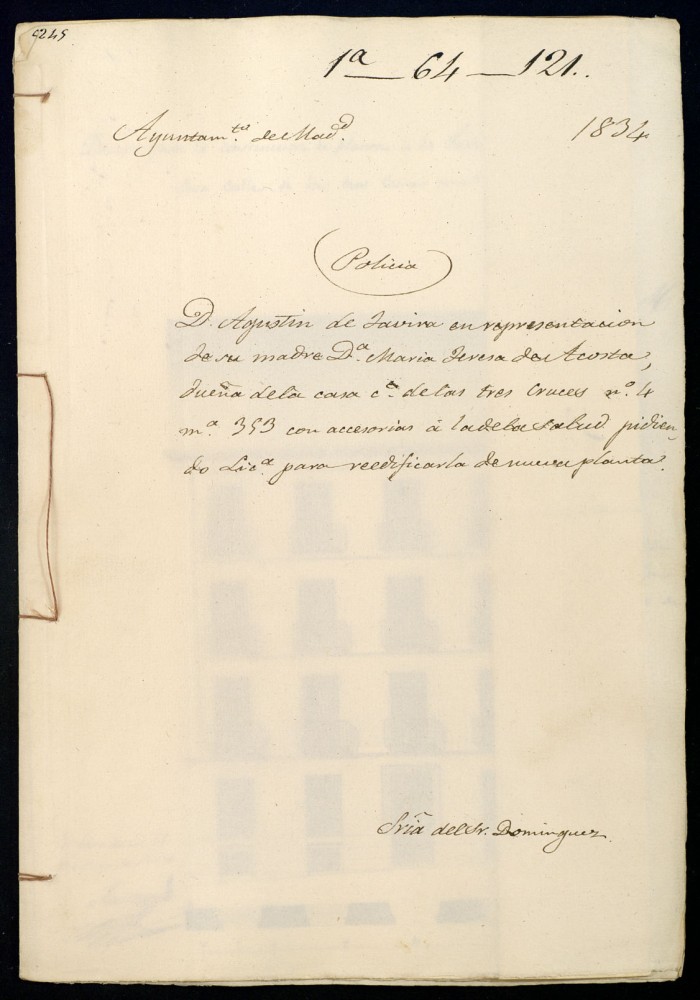 5245
1ª 64 121..
Ayuntam.to de Mad.d 1834
Policia
D. Agustin de Tavira en representacion
de su madre D.ª Maria Teresa de Acosta,
dueña dela casa c.e de las tres Cruces n.º 4
m.ª 353 con accesorias á la dela Salud pidien-
do Lic.ª para reedificarla de nueva planta.
Sría del Sr. Dominguez